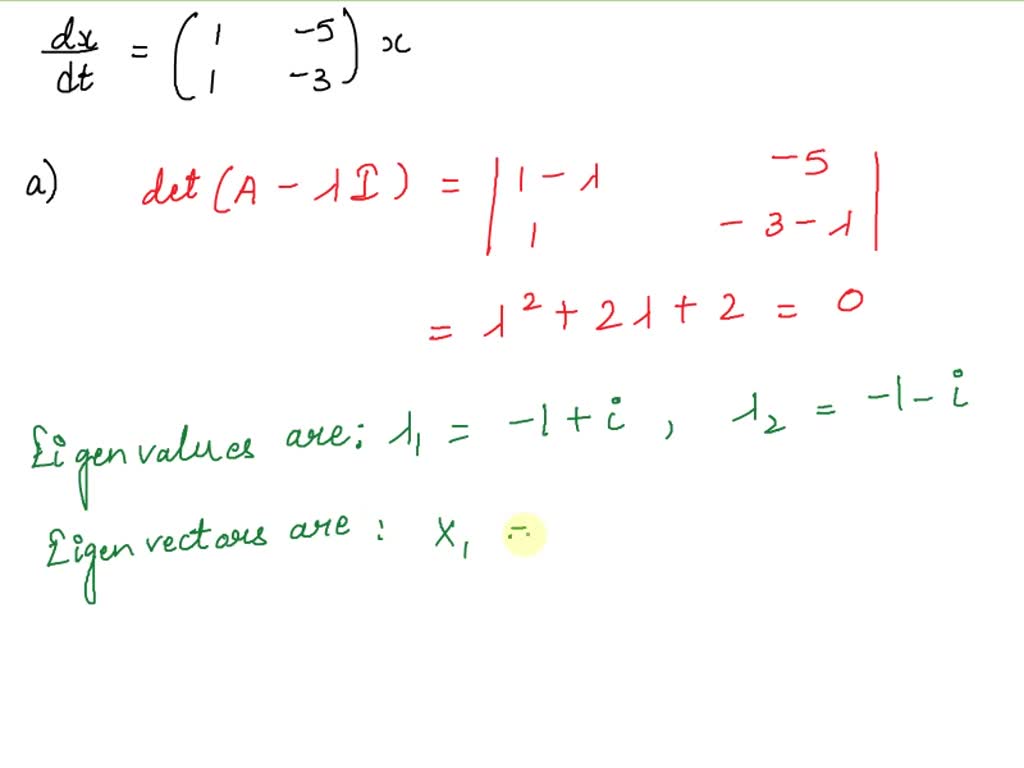 dx/dt = ( 1 -5 ; 1 -3 ) x
a) det(A - λI) = | 1-λ -5 ; 1 -3-λ |
= λ² + 2λ + 2 = 0
Eigenvalues are: λ₁ = -1+i , λ₂ = -1-i
Eigenvectors are : X₁ =